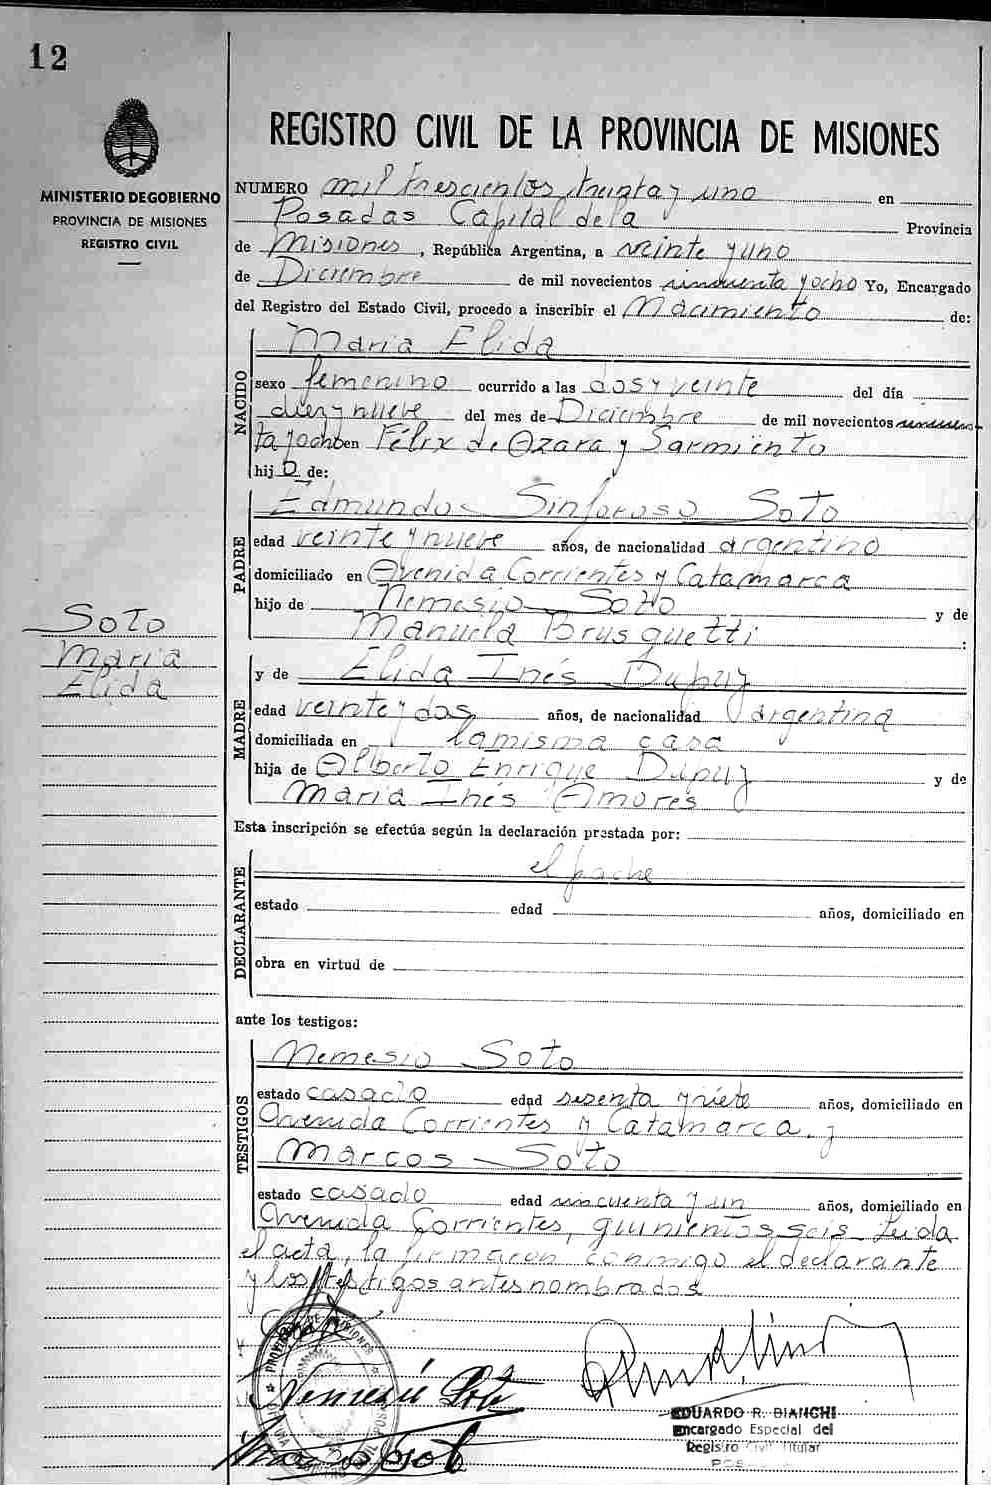 12
MINISTERIO DE GOBIERNO
PROVINCIA DE MISIONES
REGISTRO CIVIL
REGISTRO CIVIL DE LA PROVINCIA DE MISIONES
NUMERO mil trescientos treinta y uno en
Posadas Capital de la Provincia
de Misiones, República Argentina, a veinte y uno
de Diciembre de mil novecientos cincuenta y ocho Yo, Encargado
del Registro del Estado Civil, procedo a inscribir el Nacimiento de:
NACIDO
Maria Elida
sexo femenino ocurrido a las dos y veinte del día
diez y nueve del mes de Diciembre de mil novecientos cincuen
ta y ocho en Félix de Azara y Sarmiento
hij a de:
PADRE
Edmundo Sinforoso Soto
edad veinte y nueve años, de nacionalidad argentino
domiciliado en Avenida Corrientes y Catamarca
hijo de Nemesio Soto y de
Manuela Brusquetti :
Soto
Maria
Elida
MADRE
y de Elida Inés Dupuy
edad veinte y dos años, de nacionalidad argentina
domiciliada en la misma casa
hija de Alberto Enrique Dupuy y de
Maria Inés Amores
Esta inscripción se efectúa según la declaración prestada por:
DECLARANTE
el padre
estado edad años, domiciliado en
obra en virtud de
ante los testigos:
TESTIGOS
Nemesio Soto
estado casado edad sesenta y siete años, domiciliado en
Avenida Corrientes y Catamarca. y
Marcos Soto
estado casado edad cincuenta y un años, domiciliado en
Avenida Corrientes, quinientos seis. Leida
el acta, la firmaron conmigo el declarante
y los testigos antes nombrados
Nemesio Soto
EDUARDO R. BIANCHI
Encargado Especial del
Registro Civil Titular